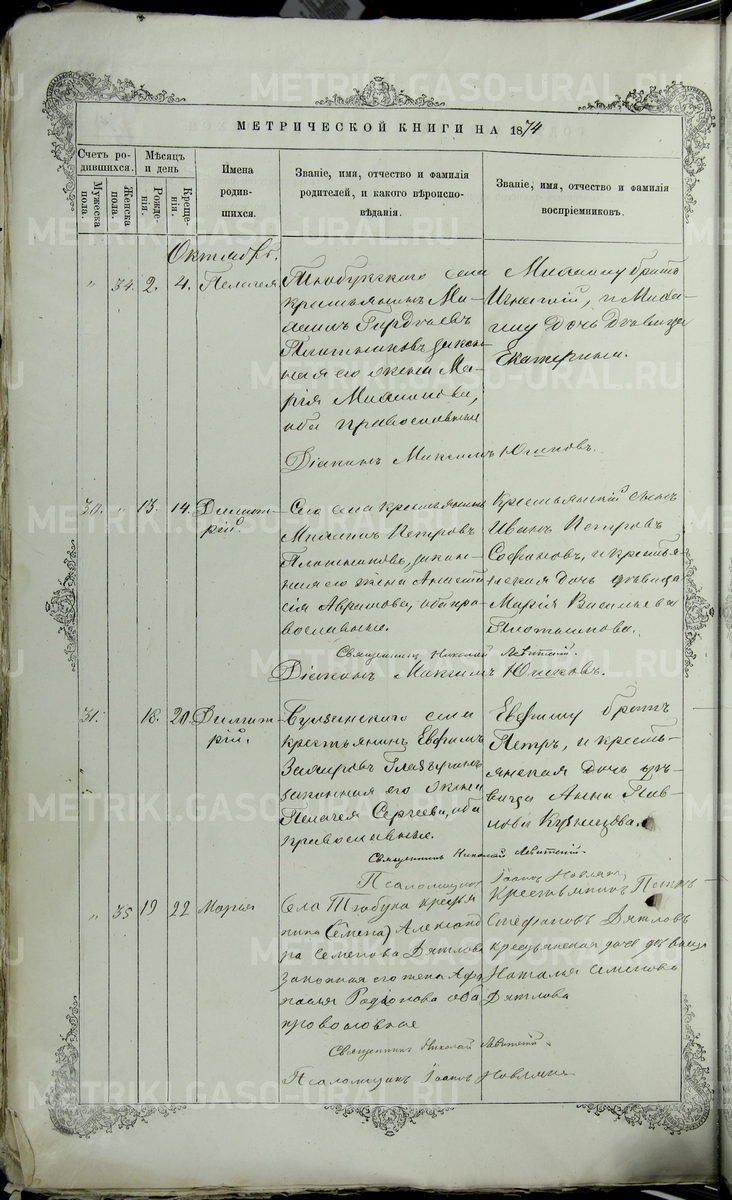 METRIKI.GASO-URAL.RU
МЕТРИЧЕСКОЙ КНИГИ НА 1874
Счетъ родившихся.
Мужеска пола.
Женска пола.
Мѣсяцъ и день
Рожденія.
Крещенія.
Имена родившихся.
Званіе, имя, отчество и фамилія родителей, и какого вѣроисповѣданія.
Званіе, имя, отчество и фамилія воспріемниковъ.
Октябрь.
" 34. 2. 4. Пелагея
Тюбукскаго села
крестьянинъ Ми-
хаилъ
Плотниковъ, закон-
ная его жена Ма-
рія
оба православные
Михаилу братъ
Игнатій, и Миха-
илу дочь дѣвица
Екатерина.
Діаконъ Максимъ Югановъ.
30. " 13. 14. Димит-
рій.
Сего села крестьянинъ
Михаилъ Петровъ
Плотниковъ, закон-
ная его жена Анаста-
сія Аврамова, оба пра-
вославные.
Крестьянскій сынъ
Иванъ Петровъ
и крестья-
нская дочь дѣвица
Марія Васильева
Плотникова.
Священникъ Николай Левитскій.
Діаконъ Максимъ Югановъ.
31. 18. 20. Димит-
рій.
села
крестьянинъ Евфимъ
Захаровъ Глазыринъ
законная его жена
Пелагея Сергеева, оба
православные.
Евфиму братъ
Петръ, и кресть-
янская дочь дѣ-
вица Анна Пав-
лова Кузнецова.
Священникъ Николай Левитскій.
Псаломщикъ Іоаннъ
" 35 19 22 Марія
Села Тюбука крестья-
нина (Семена) Александ-
ра Семенова Дятлова
законная его жена Афа-
насья Родіонова оба
православные
Крестьянинъ Петръ
Стефановъ Дятловъ
крестьянская дочь дѣвица
Наталья Семенова
Дятлова
Священникъ Николай Левитскій.
Псаломщикъ Іоаннъ